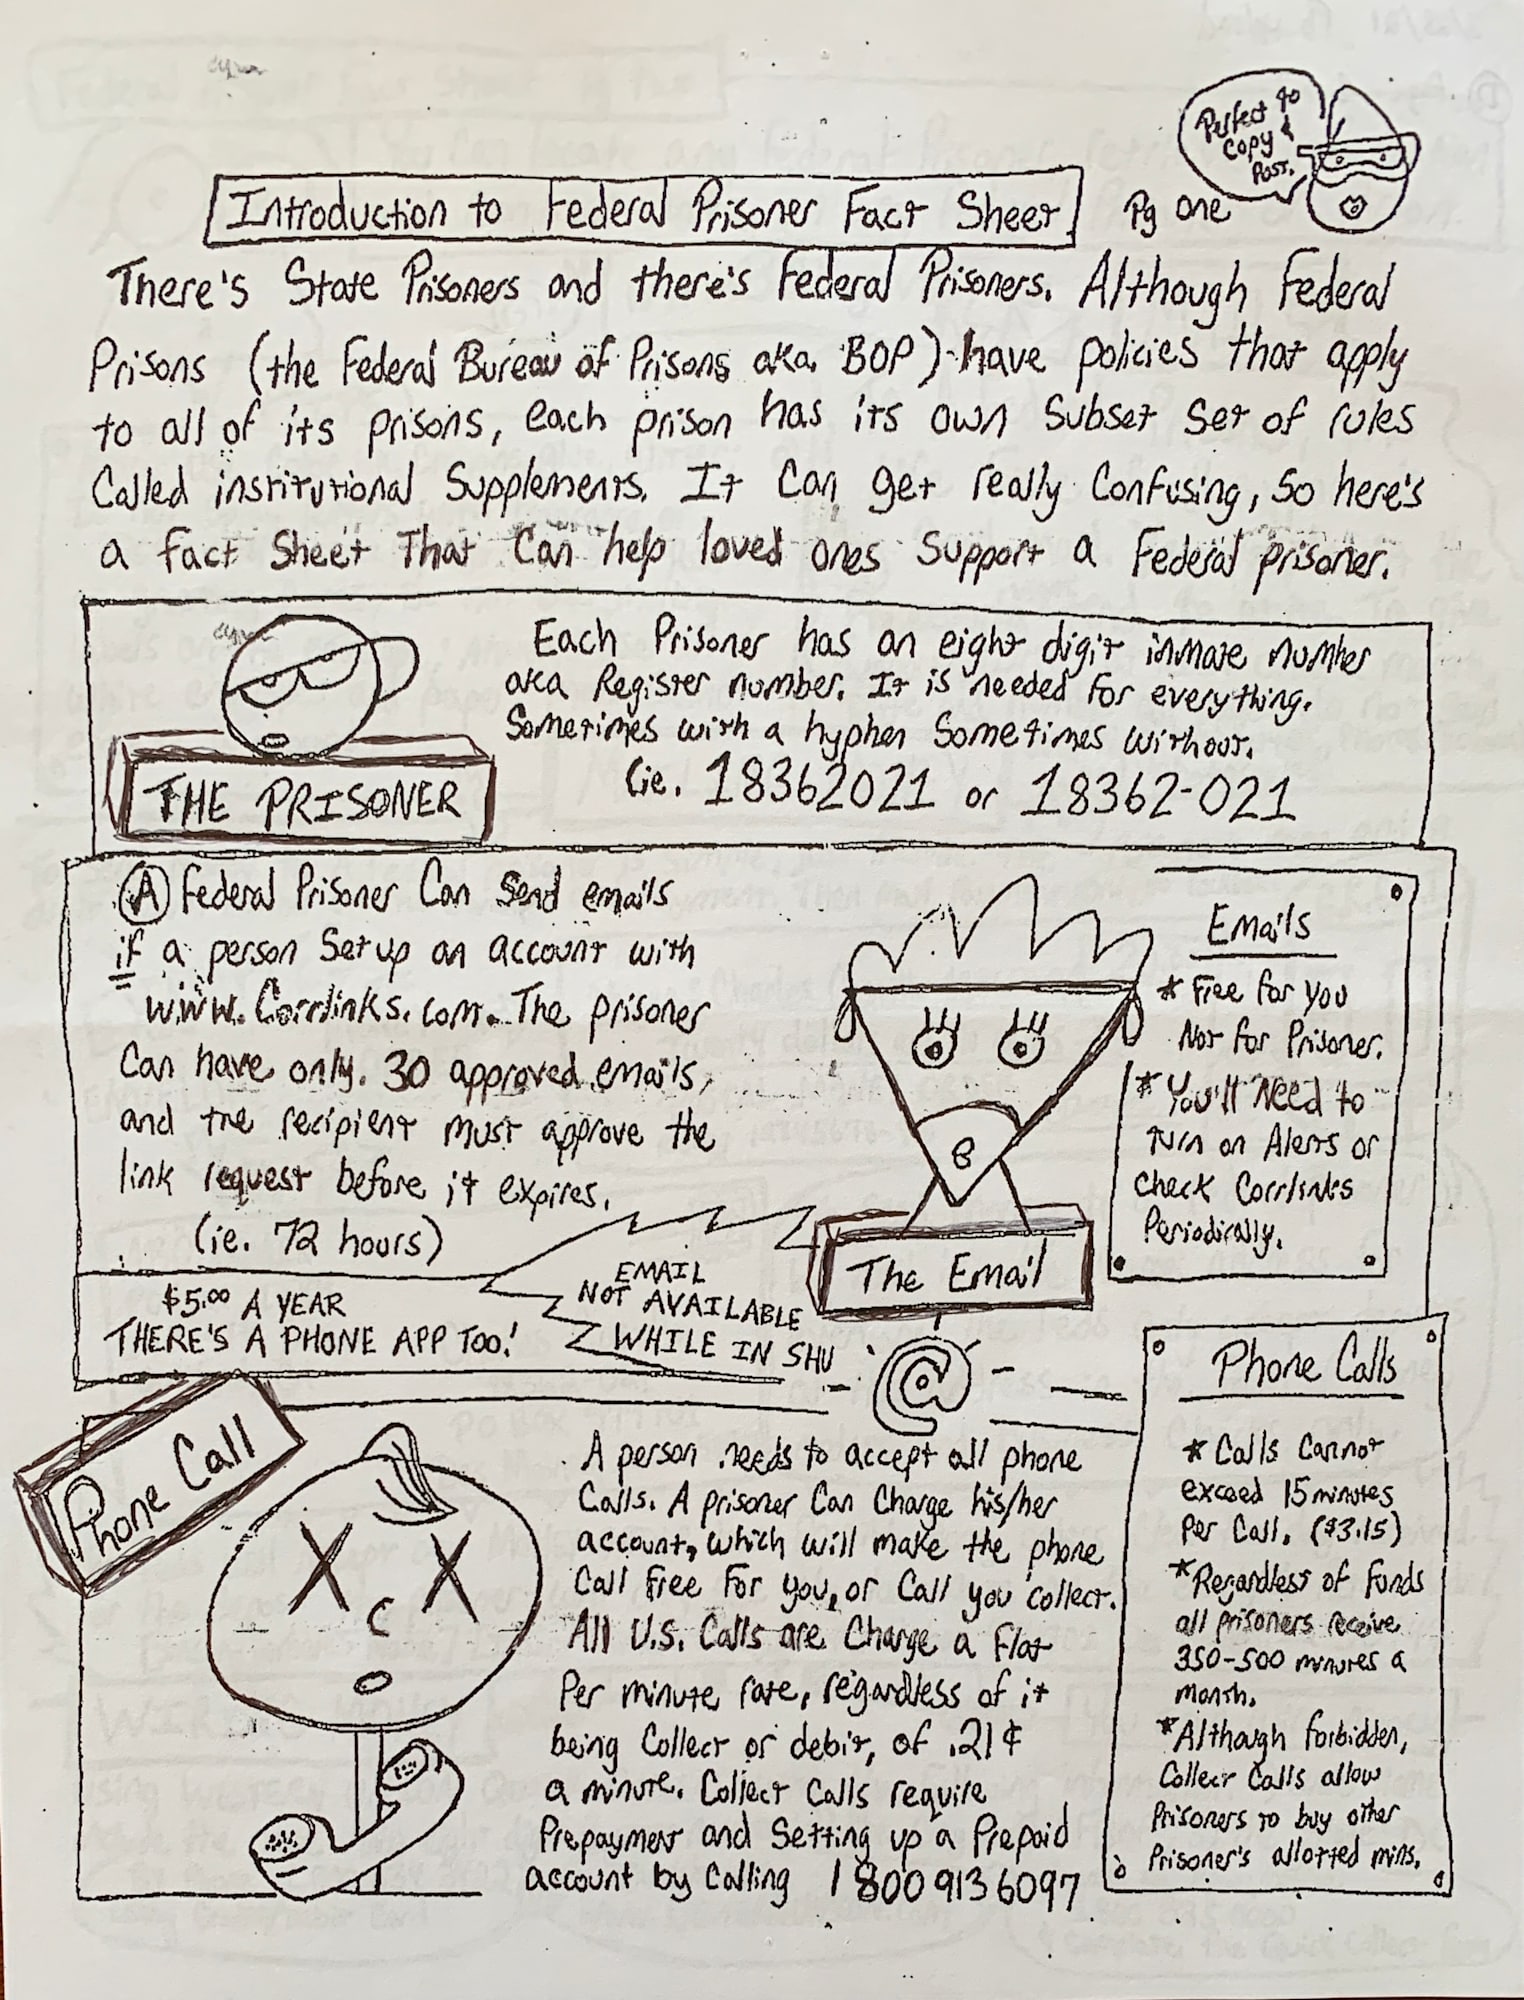 Perfect to
Copy &
Post.
Introduction to Federal Prisoner Fact Sheet
Pg One
There's State Prisoners and there's Federal Prisoners. Although Federal
Prisons (the Federal Bureau of Prisons aka. BOP) have policies that apply
to all of its prisons, each prison has its own subset set of rules
Called institutional Supplements. It can get really Confusing, So here's
a fact Sheet That Can help loved ones support a Federal prisoner.
THE PRISONER
Each Prisoner has an eight digit inmate number
aka Register number. It is needed for everything.
Sometimes with a hyphen Sometimes without.
(ie. 18362021 or 18362-021
A Federal Prisoner Can Send emails
if a person Set up an account with
www.Corrlinks.com. The prisoner
Can have only. 30 approved emails,
and the recipient must approve the
link request before it expires.
(ie. 72 hours)
$5.00 A YEAR
THERE'S A PHONE APP TOO!
EMAIL
NOT AVAILABLE
WHILE IN SHU
The Email
@
Emails
* Free for you
Not for Prisoner.
* You'll Need to
turn on Alerts or
Check Corrlinks
Periodically.
Phone Call
A person needs to accept all phone
Calls. A prisoner Can Charge his/her
account, which will make the phone
Call Free For You, or Call you collect.
All U.S. Calls are Charge a Flat
Per minute rate, regardless of it
being Collect or debit, of .21¢
a minute. Collect Calls require
Prepayment and Setting up a Prepaid
account by Calling 1 800 913 6097
Phone Calls
* Calls Cannot
exceed 15 minutes
Per Call. ($3.15)
* Regardless of funds
all prisoners receive
350-500 minutes a
month.
* Although forbidden,
Collect Calls allow
Prisoners to buy other
Prisoner's allotted mins.